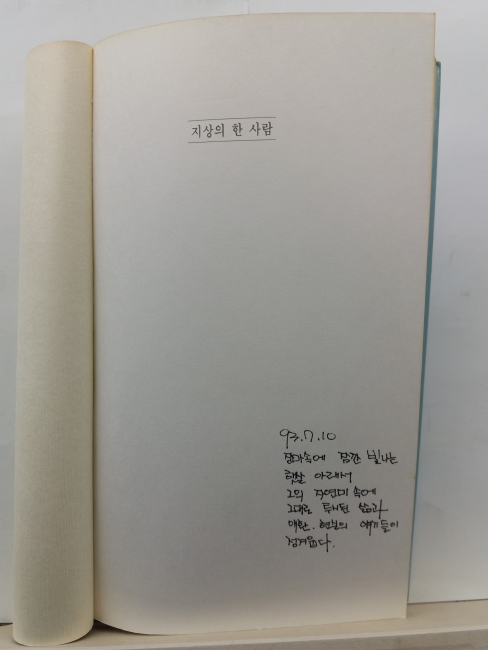 지상의 한 사람
93.7.10
장마속에 잠깐 빛나는
햇살 아래서
그의 자연미 속에
그대로 투시된 삶과
애환. 현실의 얘기들이
정겨웁다.